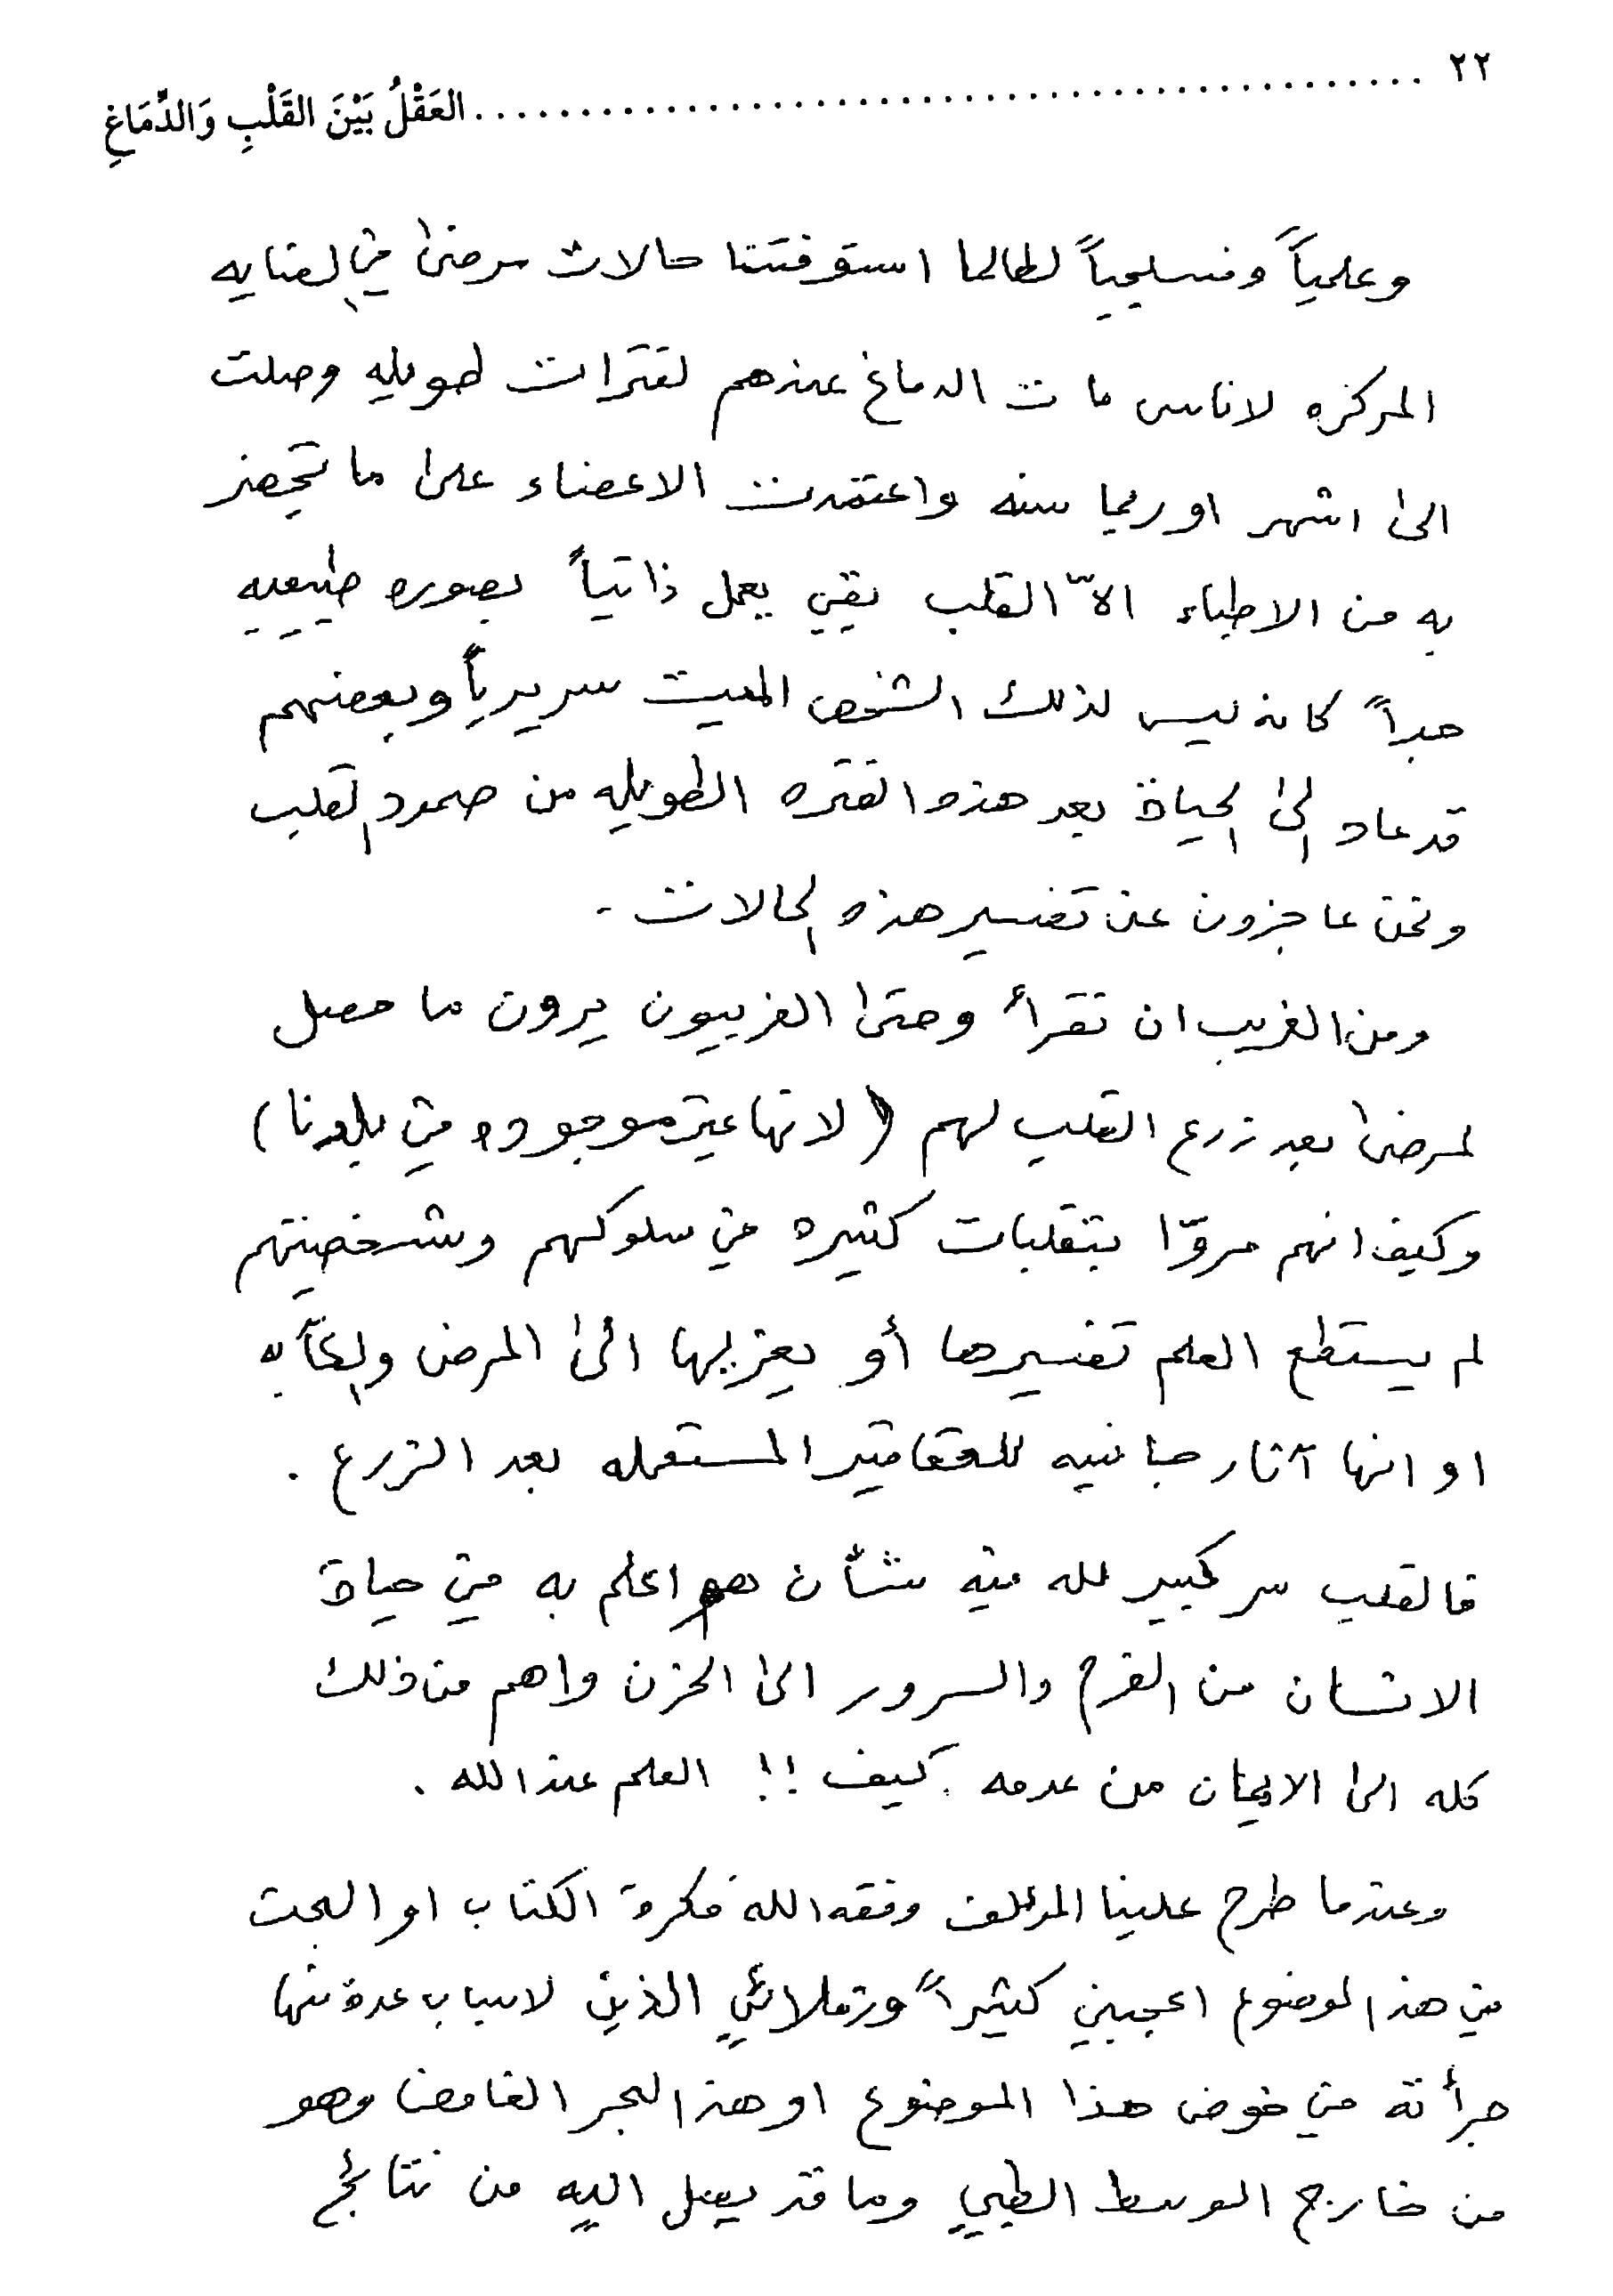 ٢٢ ........................................ العَقْلُ بَيْنَ القَلْبِ وَالدِّمَاغِ
وعلمياً وفسلجياً لطالما استوقفتنا حالات مرضى في العنايه
المركزه لاناس مات الدماغ عندهم لفترات طويله وصلت
الى اشهر او ربما سنه واعتمدت الاعضاء على ما تحضر
به من الاطباء الاّ القلب بقي يعمل ذاتياً بصوره طبيعيه
جداً كانه ليس لذلك الشخص الميت سريرياً وبعضهم
قد عاد الى الحياة بعد هذه الفتره الطويله من صمود القلب
ونحن عاجزون عن تفسير هذه الحالات .
ومن الغريب ان نقرأ وحتى الغربيون يرون ما حصل
لمرضى بعد زرع القلب لهم (لانها غير موجوده في بلدنا)
وكيف انهم مروّا بتقلبات كثيره في سلوكهم وشخصيتهم
لم يستطع العلم تفسيرها أو يعزيها الى المرض والكآبه
او انها آثار جانبيه للعقاقير المستعمله بعد الزرع .
فالقلب سر كبير لله فيه شأن هو اعلم به في حياة
الانسان من الفرح والسرور الى الحزن واهم من ذلك
كله الى الايمان من عدمه . كيف !! العلم عند الله .
وعندما طرح علينا المؤلف وفقه الله فكرة الكتاب او البحث
في هذا الموضوع اعجبني كثيراً وزملائي الذين لاسباب عدة منها
جرأته في خوض هذا الموضوع او هذا البحر الغامض وهو
من خارج الوسط الطبي وما قد يصل اليه من نتائج